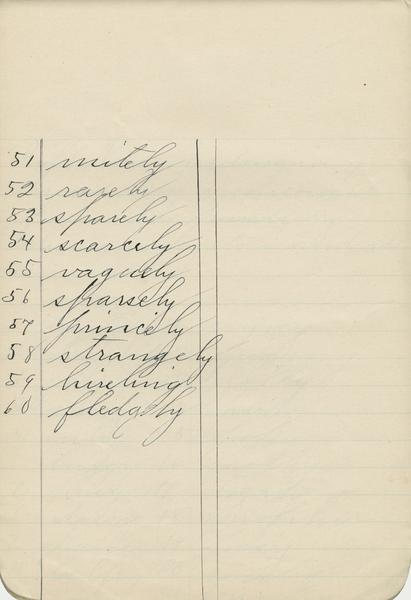 51 mitely
52 rarely
53 sparely
54 scarcely
55 vaguely
56 sparsely
57 princely
58 strangely
59 hireling
60 fledgely